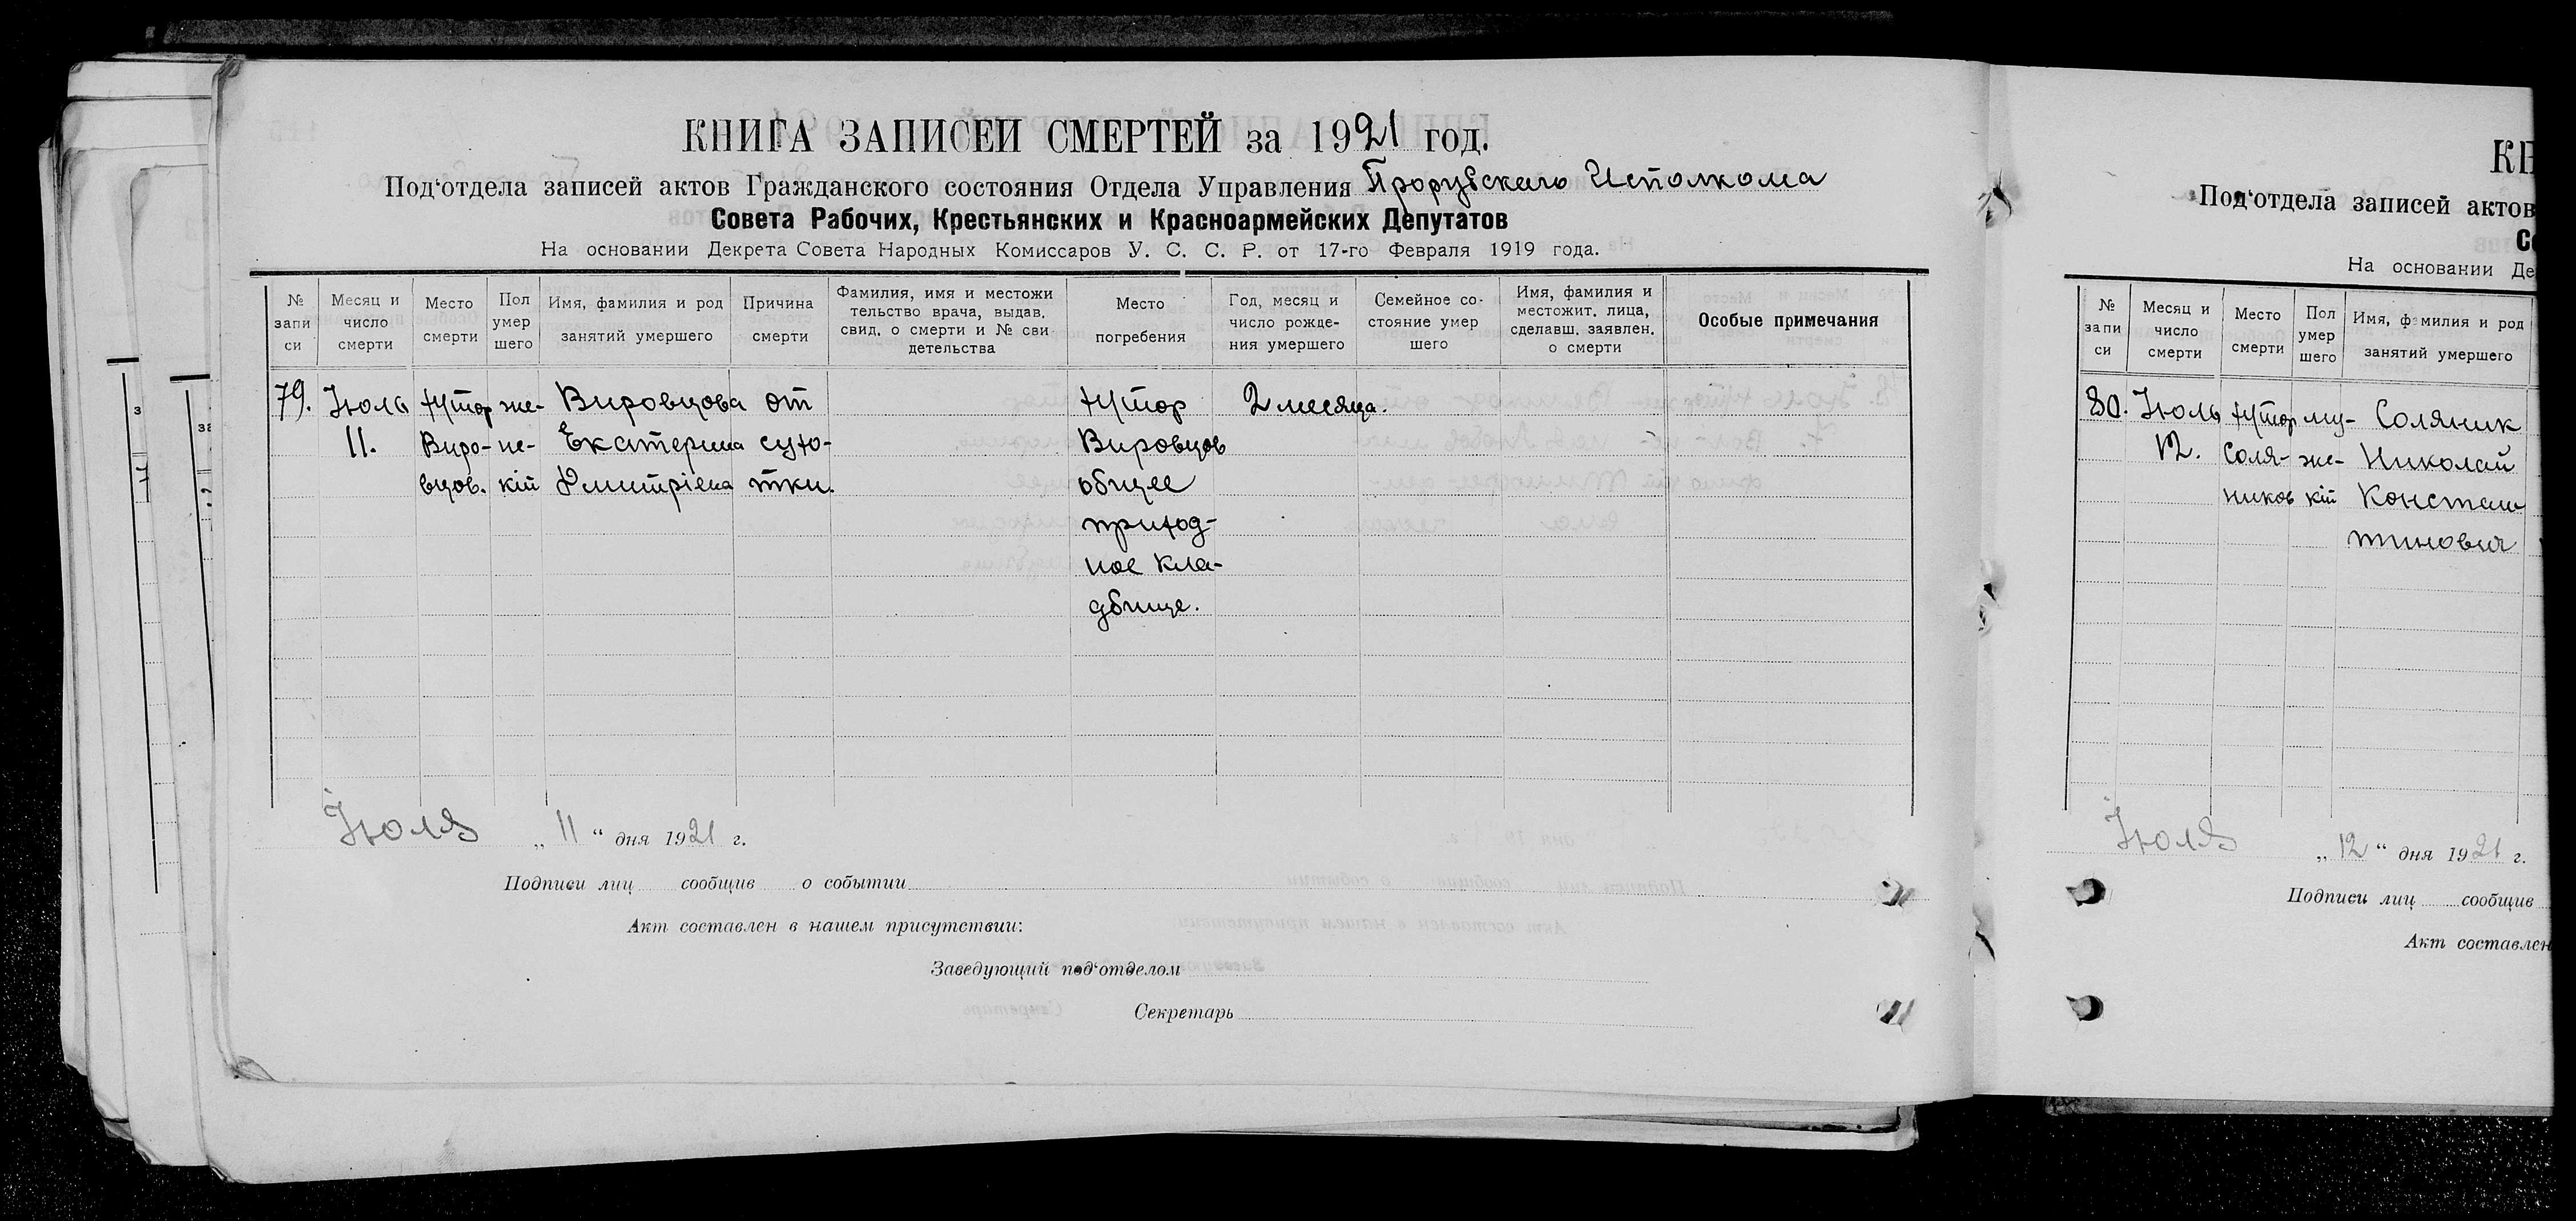 КНИГА ЗАПИСЕЙ СМЕРТЕЙ за 1921 год.
Под‘отдела записей актов Гражданского состояния Отдела Управления Прорубскаго Исполкома
Совета Рабочих, Крестьянских и Красноармейских Депутатов
На основании Декрета Совета Народных Комиссаров У. С. С. Р. от 17-го Февраля 1919 года.
№ запи си
Месяц и число смерти
Место смерти
Пол умер шего
Имя, фамилия и род занятий умершего
Причина смерти
Фамилия, имя и местожи тельство врача, выдав. свид. о смерти и № сви детельства
Место погребения
Год, месяц и число рожде- ния умершего
Семейное со- стояние умер шего
Имя, фамилия и местожит. лица, сделавш. заявлен. о смерти
Особые примечания
79. Іюль хутор же- Вировцова от хутор 2 месяца.
11. Виро- нс- Екатерина сухо- Вировцов
вцов. кій Димитріева тки. общее
приход-
ное кла-
дбище.
Іюля „ 11 “ дня 1921 г.
Подписи лиц сообщив о событии
Акт составлен в нашем присутствии:
Заведующий под‘отделом
Секретарь
КН
Под‘отдела записей актов
Со
На основании Де
№ запи си
Месяц и число смерти
Место смерти
Пол умер шего
Имя, фамилия и род занятий умершего
80. Іюль хутор му- Соляник
12. Соля- же- Николай
ников кій Констан
тинович
Іюля „ 12 “ дня 1921 г.
Подписи лиц сообщив
Акт составлен